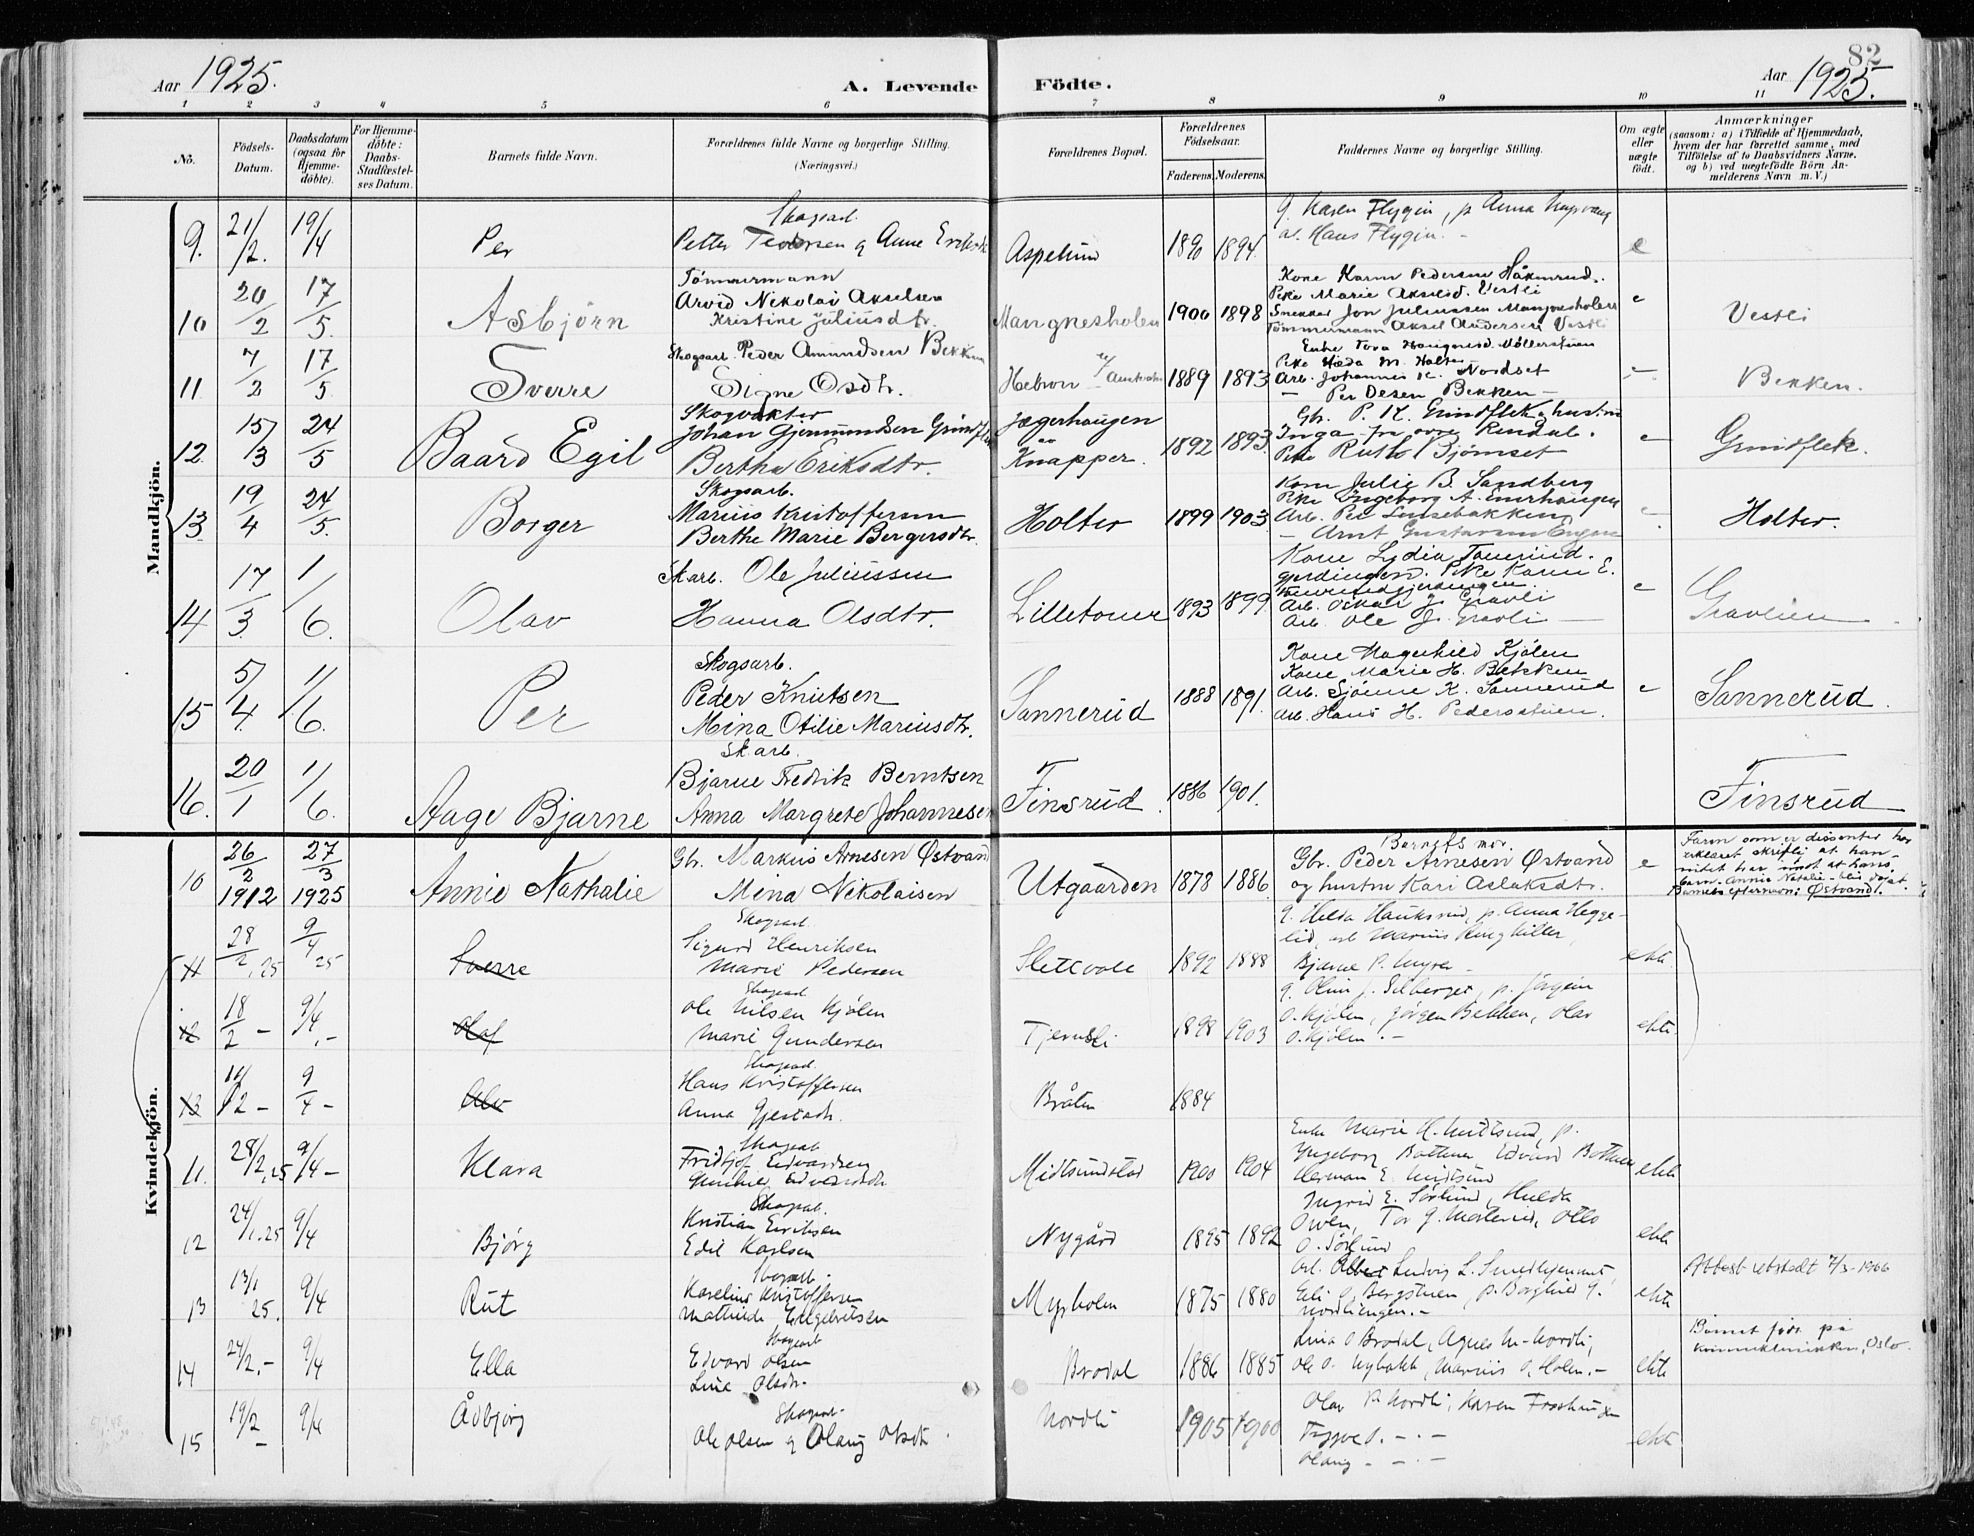 82
Aar 1925.
A. Levende Födte.
Aar 1925.
1 2 3 4 5 6 7 8 9 10 11
No.
Födsels-Datum.
Daabsdatum (ogsaa for Hjemme-döbte).
For Hjemme-döbte: Daabs-Stadfæstel-ses Datum.
Barnets fulde Navn.
Forældrenes fulde Navne og borgerlige Stilling.
(Næringsvei.)
Forældrenes Bopæl.
Forældrenes Födselsaar.
Faderens. Moderens.
Faddernes Navne og borgerlige Stilling.
Om ægte eller uægte födt.
Anmærkninger
(saasom: a) i Tilfælde af Hjemmedaab,
hvem der har forrettet samme, med
Tilföielse af to Daabsvidners Navne.
og b) ved uægtefödte Börn An-
melderens Navn m. V.)
Mandkjön.
Skogsarb.
9. 21/2. 19/4 Per Petter Teodorsen og Anne Aspelund 1890 1894. e
G. Karen Flygin, p Anna
Hans Flygin. -
Tömmermann
Arvid Nikolai Akselsen
10 20/2 17/5. Asbjörn Kristine Juliusdtr. Mangnesholen 1900 1898 e Vestli
Kone Karen Pedersen Håkenrud.
Pike Marie Akselsd. Vestli
Snekker Jon Juliussen Mangnesholen
Tömmermann Aksel Andersen Vestli
Skogsarb. Peder Amundsen Bekken
11. 7/2 17/5. Sverre Signe Osdtr. Hebron 1889 1893 e Bekken.
Enke Tova Haugerud. Möllerstuen
Pike Hæda M. Holter
Arb. Johannes K. Nordset
— Per Olesen Bekken —
Skogvokter
Johan Gjermundsen Grindflek
12. 15/3 24/5 Baard Egil Berthe Eriksdtr. Jægerhaugen Knapper. 1892 1893. e Grindflek.
Gbr. P. K. Grindflek & hustru
Inga fra övre Rendal.
Pike Ruth Bjørnset
Skogsarb.
Marius Kristoffersen
13 19/4 24/5. Borger Berthe Marie Bergersdtr. Holter 1899 1903 e Holter.
Kone Julie B. Sandberg
Pike Ingeborg A. Enerhaugen
Arb. Per Lusebakken
— Arnt Gustavsen Engen
Sk arb. Ole Juliussen
14 17/3 1/6. Olav Hanna Olsdtr. Lilletomer 1893 1899 e Gravlien
Kone Lydia
Pike Karen E.
Arb. Oskar J. Gravli
Arb. Ole J. Gravli —
Skogsarb.
Peder Knutsen
15 5/4. 1/6. Per Mina Otilie Mariusdtr. Sannerud 1888 1891. e Sannerud.
Kone Magnhild Kjølen
Kone Marie H. Bakken
Arb. Sjønne K. Sannerud
Arb. Hans H. Pedersstuen.
Sk arb.
Bjarne Fredrik Berntsen
16. 20/1 1/6. Aage Bjarne Anna Margrete Johannesen Finsrud. 1886 1901. Finsrud
Kvindekjön.
Gbr. Markus Arnesen Østvand
10 26/2 1912 27/3 1925 Annie Nathalie Mina Nikolaisen Utgaarden 1878 1886. e
Barnets mor.
Gbr. Peder Arnesen Østvand
og hustru Kari Aslaksdtr.
Faren som er dissenter har
erklæret skriftli at han
intet har imot at hans
barn - Annie Natalie - blir døpt.
Barnets efternavn: Østvand.
Skogsarb.
Sigurd Henriksen
11 28/2.25 9/4 25 Sverre Marie Pedersen Sletvole 1892 1888 ekte
G. Hilda Hauksrud, p. Anna Hegge-
lid, arb Marius Ringkiller,
Bjarne P. Myrer -
Skogsarb
Ole Nilsen Kjølen
12 18/2 - 9/4.- Olaf Marie Gundersen Tjernsli 1898 1903 ekte
G. Oline J. Selberget, p. Jørgine
O. Kjølen, Jørgen Bekken, Olav
O. Kjølen. -
Skogsarb.
Hans Kristoffersen
13 11/12 - 9/4 - Alv Anna Gjestsdtr. Bråten 1884
Skogsarb
Fridtjof Edvardsen
11. 28/2.25 9/4 - Klara Gunhild Edvardsdtr Midtsundstad 1900 1904 ekte
Enke Marie H. Midtsund, p.
Yngeborg Bottner, Edvard Bottner
Herman E. Midtsund
Skogsarb.
Kristian Eriksen
12 24/1.25 9/4 Bjørg Edit Karlsen Nygård 1895 1892 ekte
Ingrid E. Sørlund, Hulda
Owen, Tor G. Otto
O. Sørlund
Skogsarb.
Karelius Kristoffersen
13 13/1 25. 9/4 Rut Mathilde Engebretsen Myrholm 1875 1880 ekte
Arb. Albert Ludvig L. Smedhjemmet,
Eli O. Bergstuen, p. Borghild G.
Nordliengen. -
Attest utstedt 7/3-1966
Skogsarb
Edvard Olsen
14 24/2.- 9/4 Ella Line Olsdtr. Brodal 1886 1885 ekte
Lina O Brodal, Agnes M. Nordli,
Ole O. Nybakk, Marius O. Holen. -
Barnet født på
kvinneklinikken, Oslo.
Skogsarb.
15 19/2 - 9/4 Ådbjørg Ole Olsen og Olaug Olsdtr. Nordli 1905 1900 ekte
Olav P. Nordli, Karen
Trygve O. - . -
Olaug - - . -